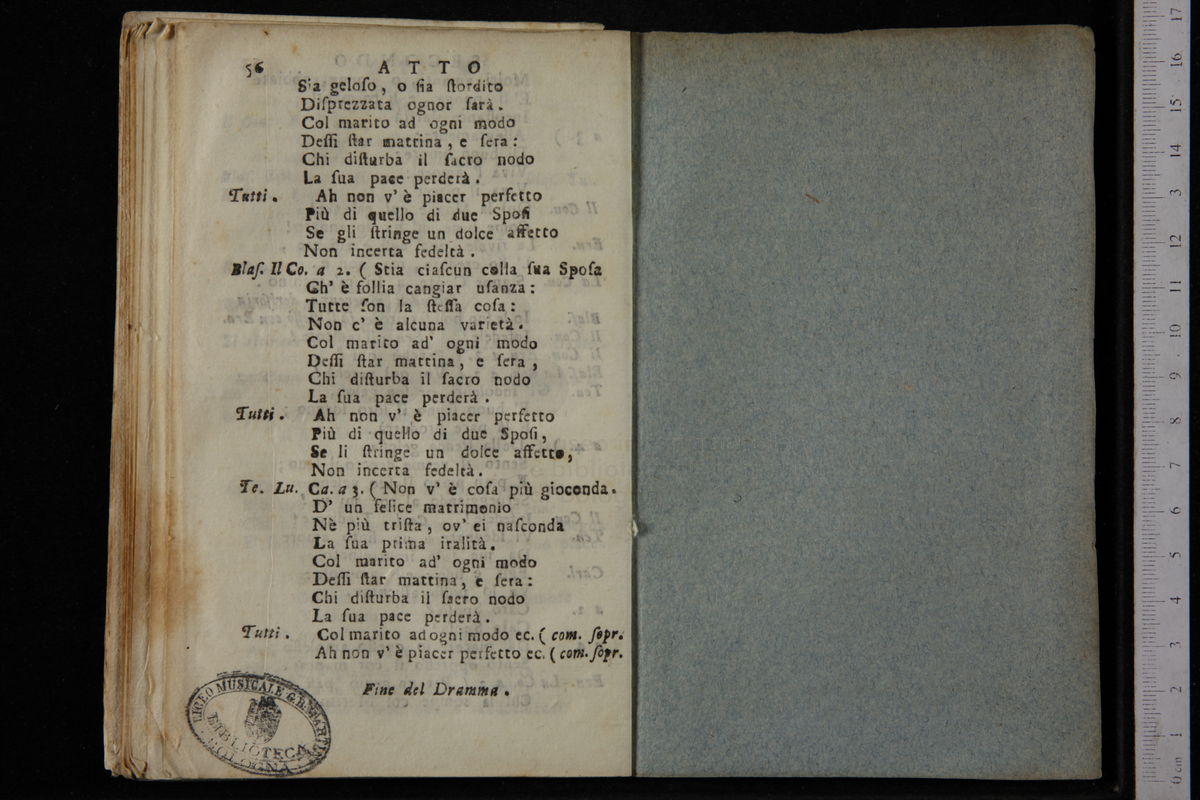 56 ATTO
Sia geloſo, o ſia ſtordito
Diſprezzata ognor ſarà.
Col marito ad ogni modo
Deſſi ſtar mattina, e ſera:
Chi diſturba il ſacro nodo
La ſua pace perderà.
Tutti. Ah non v' è piacer perfetto
Più di quello di due Spoſi
Se gli ſtringe un dolce affetto
Non incerta fedeltà.
Blaſ. Il Co. a 2. ( Stia ciaſcun colla ſua Spoſa
Ch' è follia cangiar uſanza:
Tutte ſon la ſteſſa coſa:
Non c' è alcuna varietà.
Col marito ad' ogni modo
Deſſi ſtar mattina, e ſera,
Chi diſturba il ſacro nodo
La ſua pace perderà.
Tutti. Ah non v' è piacer perfetto
Più di quello di due Spoſi,
Se li ſtringe un dolce affetto,
Non incerta fedeltà.
Te. Lu. Ca. a 3. ( Non v' è coſa più gioconda.
D' un felice matrimonio
Nè più triſta, ov' ei naſconda
La ſua prima iralità.
Col marito ad' ogni modo
Deſſi ſtar mattina, e ſera:
Chi diſturba il ſacro nodo
La ſua pace perderà.
Tutti. Col marito ad ogni modo ec. ( com. ſopr.
Ah non v' è piacer perfetto ec. ( com. ſopr.
Fine del Dramma.
LICEO MUSICALE G.B. MARTINI
BIBLIOTECA
BOLOGNA
0 cm 1 2 3 4 5 6 7 8 9 10 11 12 13 14 15 16 17